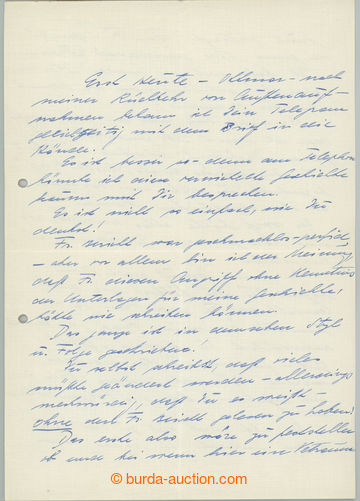 Erst heute – Ottmar – nach
meiner Rückkehr von Außenauf-
nahmen bekam ich Dein Telegram
gleichzeitig mit dem Brief in die
Hände.
Es ist besser so – denn am Telephon
könnte ich eine verwickelte Geschichte
kaum mit Dir besprechen.
Es ist nicht so einfach, wie Du
denkst!
Fr. war geschmacklos – perfid
– aber vor allem bin ich der Meinung,
daß Fr. diesen Angriff ohne Kenntnis
der Unterlagen für meine Geschichte,
hätte nie schreiben können.
Das ganze ist in demselben Styl
u. Folge geschrieben!
Du selbst schreibst, daß vieles
müßte geändert werden – allerdings
merkwürdig, daß Du es weißt –
ohne den Fr. gelesen zu haben!
Das erste also wäre zu feststellen
ob
© burda-auction.com